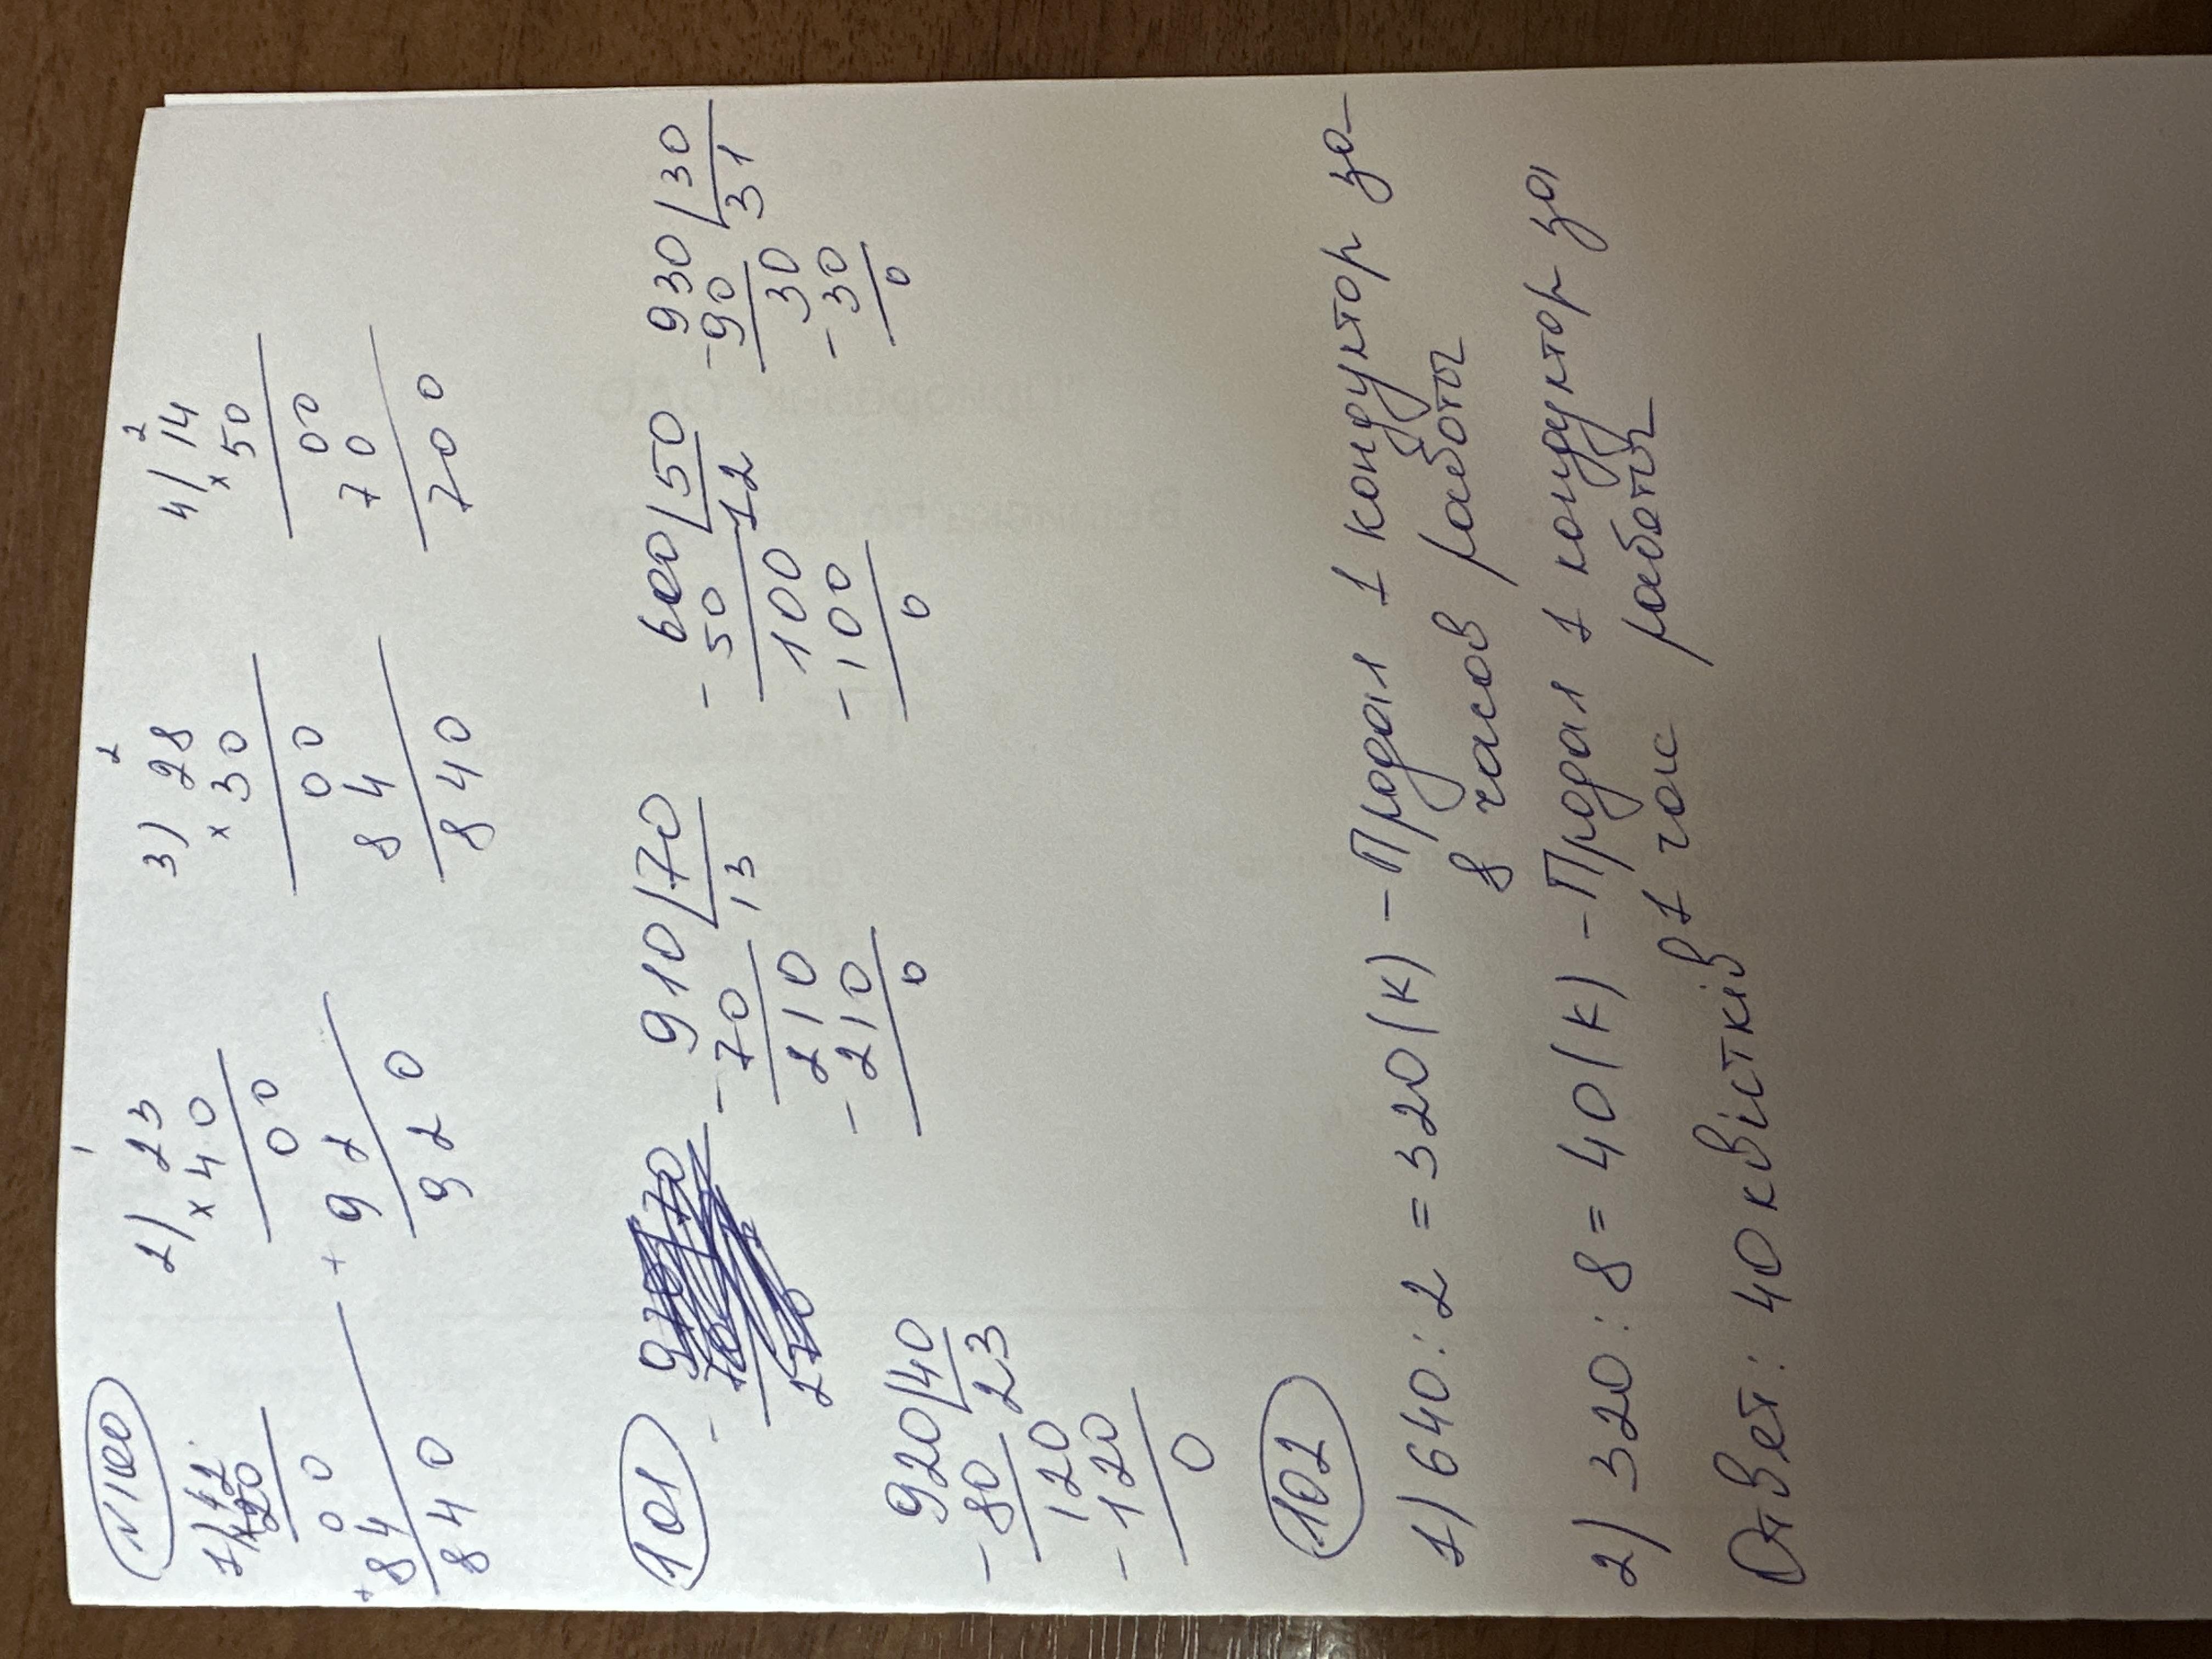 №100
1) 42 2) 23 3) 28 4) 14
×20 ×40 ×30 ×50
00 00 00 00
+84 +92 84 70
840 920 840 700
101 910 70 600 50 930 30
-70 13 -50 12 -90 31
210 100 30
-210 -100 -30
0 0 0
920 40
-80 23
120
-120
0
102
1) 640:2=320(к) - Продал 1 кондуктор за
8 часов работы
2) 320:8=40(к) - Продал 1 кондуктор за
1 час работы
Ответ: 40 квістків